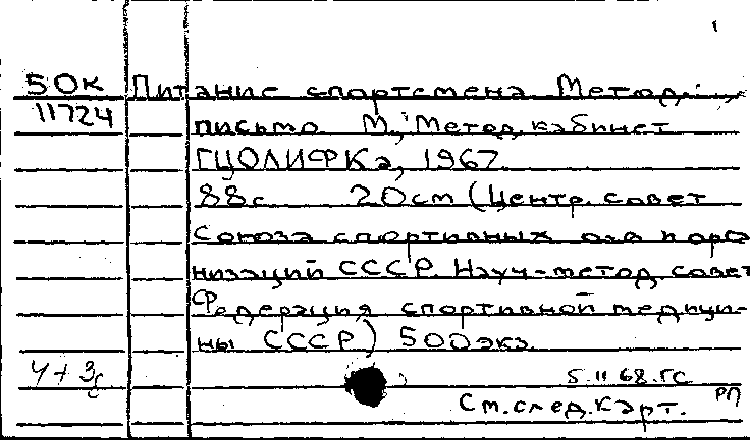 1
50К Питание спортсмена. Метод.
11724 письмо М., "Метод. кабинет
ГЦОЛИФКа, 1967
88с 20см (Центр. совет
Союза спортивных о-в и орга
низаций СССР. Науч-метод. совет
Федерация спортивной медици-
ны СССР) 500экз.
4+3с 5.11.68.ГС
См.след.карт. РП